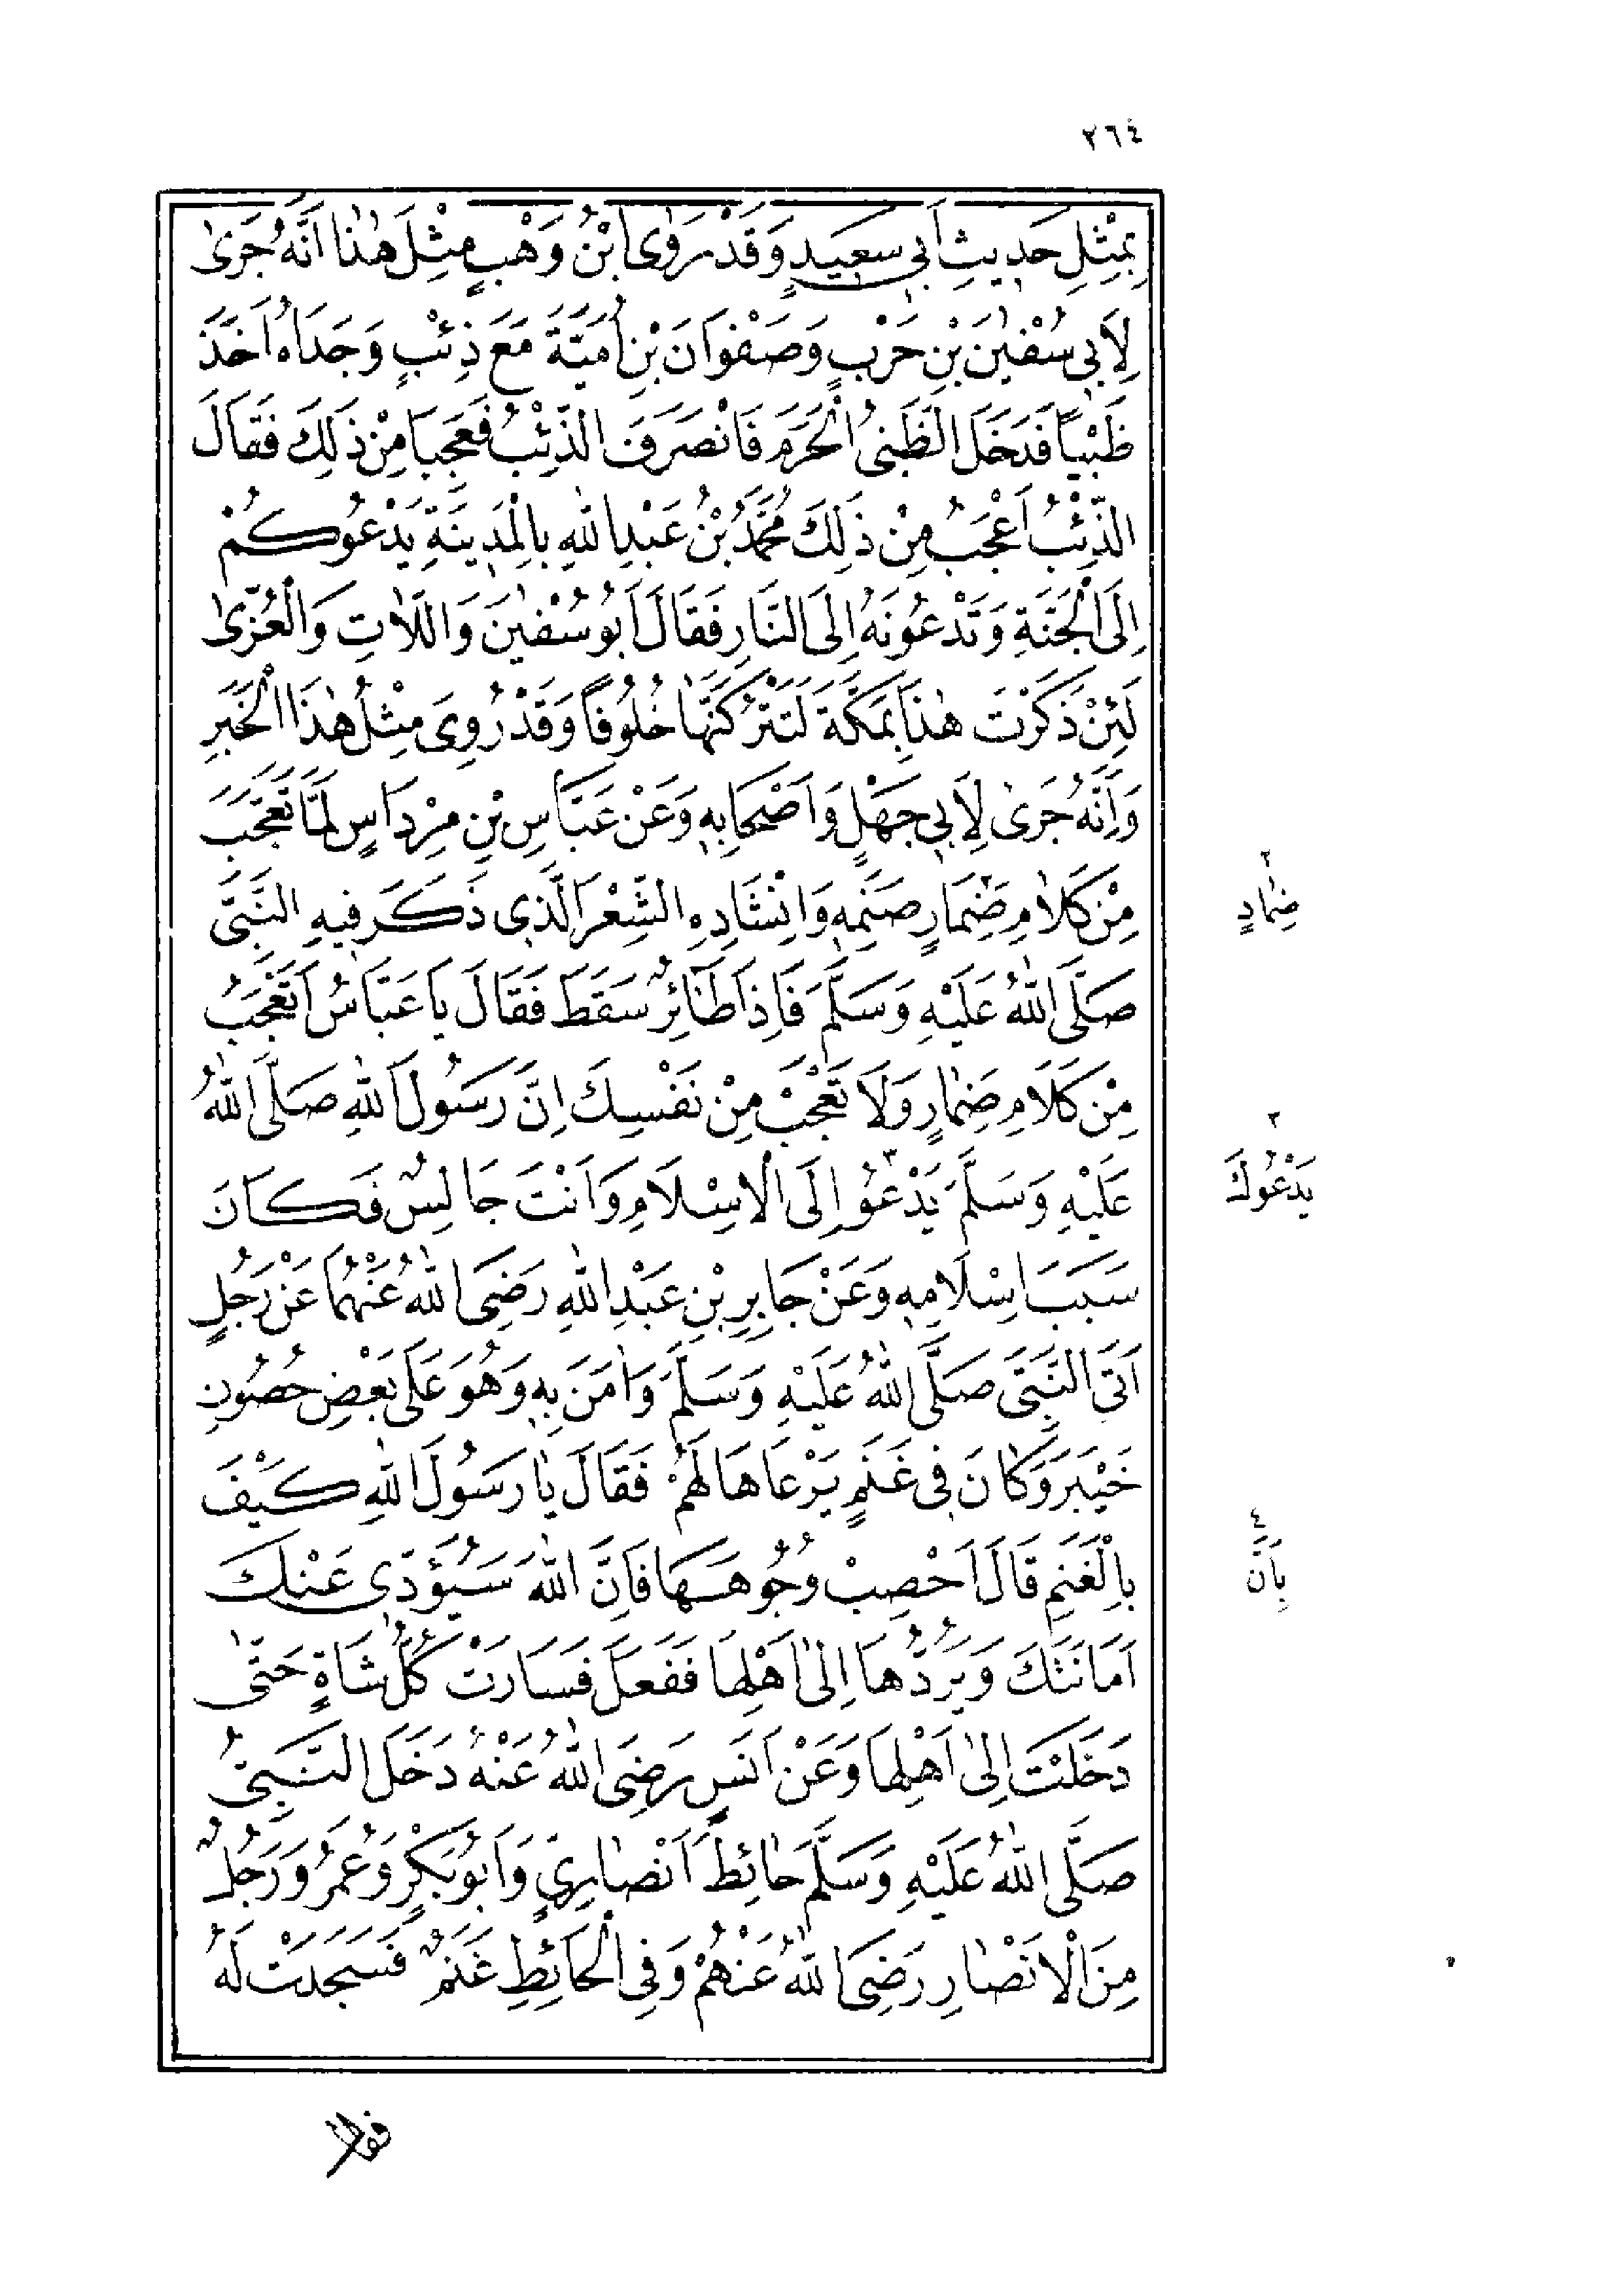 ٢٦٤
بِمِثْلِ حَدِيثِ اَبِي سَعِيدٍ وَقَدْ رَوٰى ابْنُ وَهْبٍ مِثْلَ هٰذَا اَنَّهُ جَرٰى
لِاَبِي سُفْيٰنَ بْنِ حَرْبٍ وَصَفْوَانَ بْنِ اُمَيَّةَ مَعَ ذِئْبٍ وَجَدَاهُ اَخَذَ
ظَبْيًا فَدَخَلَ الظَّبْىُ الْحَرَمَ فَانْصَرَفَ الذِّئْبُ فَعَجِبَا مِنْ ذَلِكَ فَقَالَ
الذِّئْبُ اَعْجَبُ مِنْ ذَلِكَ مُحَمَّدُ بْنُ عَبْدِ اللهِ بِالْمَدِينَةِ يَدْعُوكُمْ
اِلَى الْجَنَّةِ وَتَدْعُونَهُ اِلَى النَّارِ فَقَالَ اَبُو سُفْيٰنَ وَاللَّاتِ وَالْعُزّٰى
لَئِنْ ذَكَرْتَ هٰذَا بِمَكَّةَ لَتَتْرُكَنَّهَا خُلُوفًا وَقَدْ رُوِىَ مِثْلُ هٰذَا الْخَبَرِ
وَاَنَّهُ جَرٰى لِاَبِي جَهْلٍ وَاَصْحَابِهِ وَعَنْ عَبَّاسِ بْنِ مِرْدَاسٍ لَمَّا تَعَجَّبَ
مِنْ كَلَامِ ضِمَارٍ صَنَمِهِ وَاِنْشَادِهِ الشِّعْرَ الَّذِى ذَكَرَ فِيهِ النَّبِىَّ
٢
ضِمَادٍ
صَلَّى اللهُ عَلَيْهِ وَسَلَّمَ فَاِذَا طَائِرٌ سَقَطَ فَقَالَ يَا عَبَّاسُ اَتَعْجَبُ
مِنْ كَلَامِ ضِمَارٍ وَلَا تَعْجَبُ مِنْ نَفْسِكَ اِنَّ رَسُولَ اللهِ صَلَّى اللهُ
عَلَيْهِ وَسَلَّمَ يَدْعُو ٣ اِلَى الْاِسْلَامِ وَاَنْتَ جَالِسٌ فَكَانَ
٣
يَدْعُوكَ
سَبَبَ اِسْلَامِهِ وَعَنْ جَابِرِ بْنِ عَبْدِ اللهِ رَضِىَ اللهُ عَنْهُمَا عَنْ رَجُلٍ
اَتَى النَّبِىَّ صَلَّى اللهُ عَلَيْهِ وَسَلَّمَ وَاٰمَنَ بِهِ وَهُوَ عَلَى بَعْضِ حُصُونِ
خَيْبَرَ وَكَانَ فِى غَنَمٍ يَرْعَاهَا لَهُمْ فَقَالَ يَا رَسُولَ اللهِ كَيْفَ
بِالْغَنَمِ قَالَ اَحْصِبْ وُجُوهَهَا فَاِنَّ اللهَ سَيُؤَدِّى عَنْكَ
٤
بِاَنَّ
اَمَانَتَكَ وَيَرُدُّهَا اِلٰى اَهْلِهَا فَفَعَلَ فَسَارَتْ كُلُّ شَاةٍ حَتّٰى
دَخَلَتْ اِلٰى اَهْلِهَا وَعَنْ اَنَسٍ رَضِىَ اللهُ عَنْهُ دَخَلَ النَّبِىُّ
صَلَّى اللهُ عَلَيْهِ وَسَلَّمَ حَائِطَ اَنْصَارِىٍّ وَاَبُو بَكْرٍ وَعُمَرُ وَرَجُلٌ
مِنَ الْاَنْصَارِ رَضِىَ اللهُ عَنْهُمْ وَفِى الْحَائِطِ غَنَمٌ فَسَجَدَتْ لَهُ
فقال